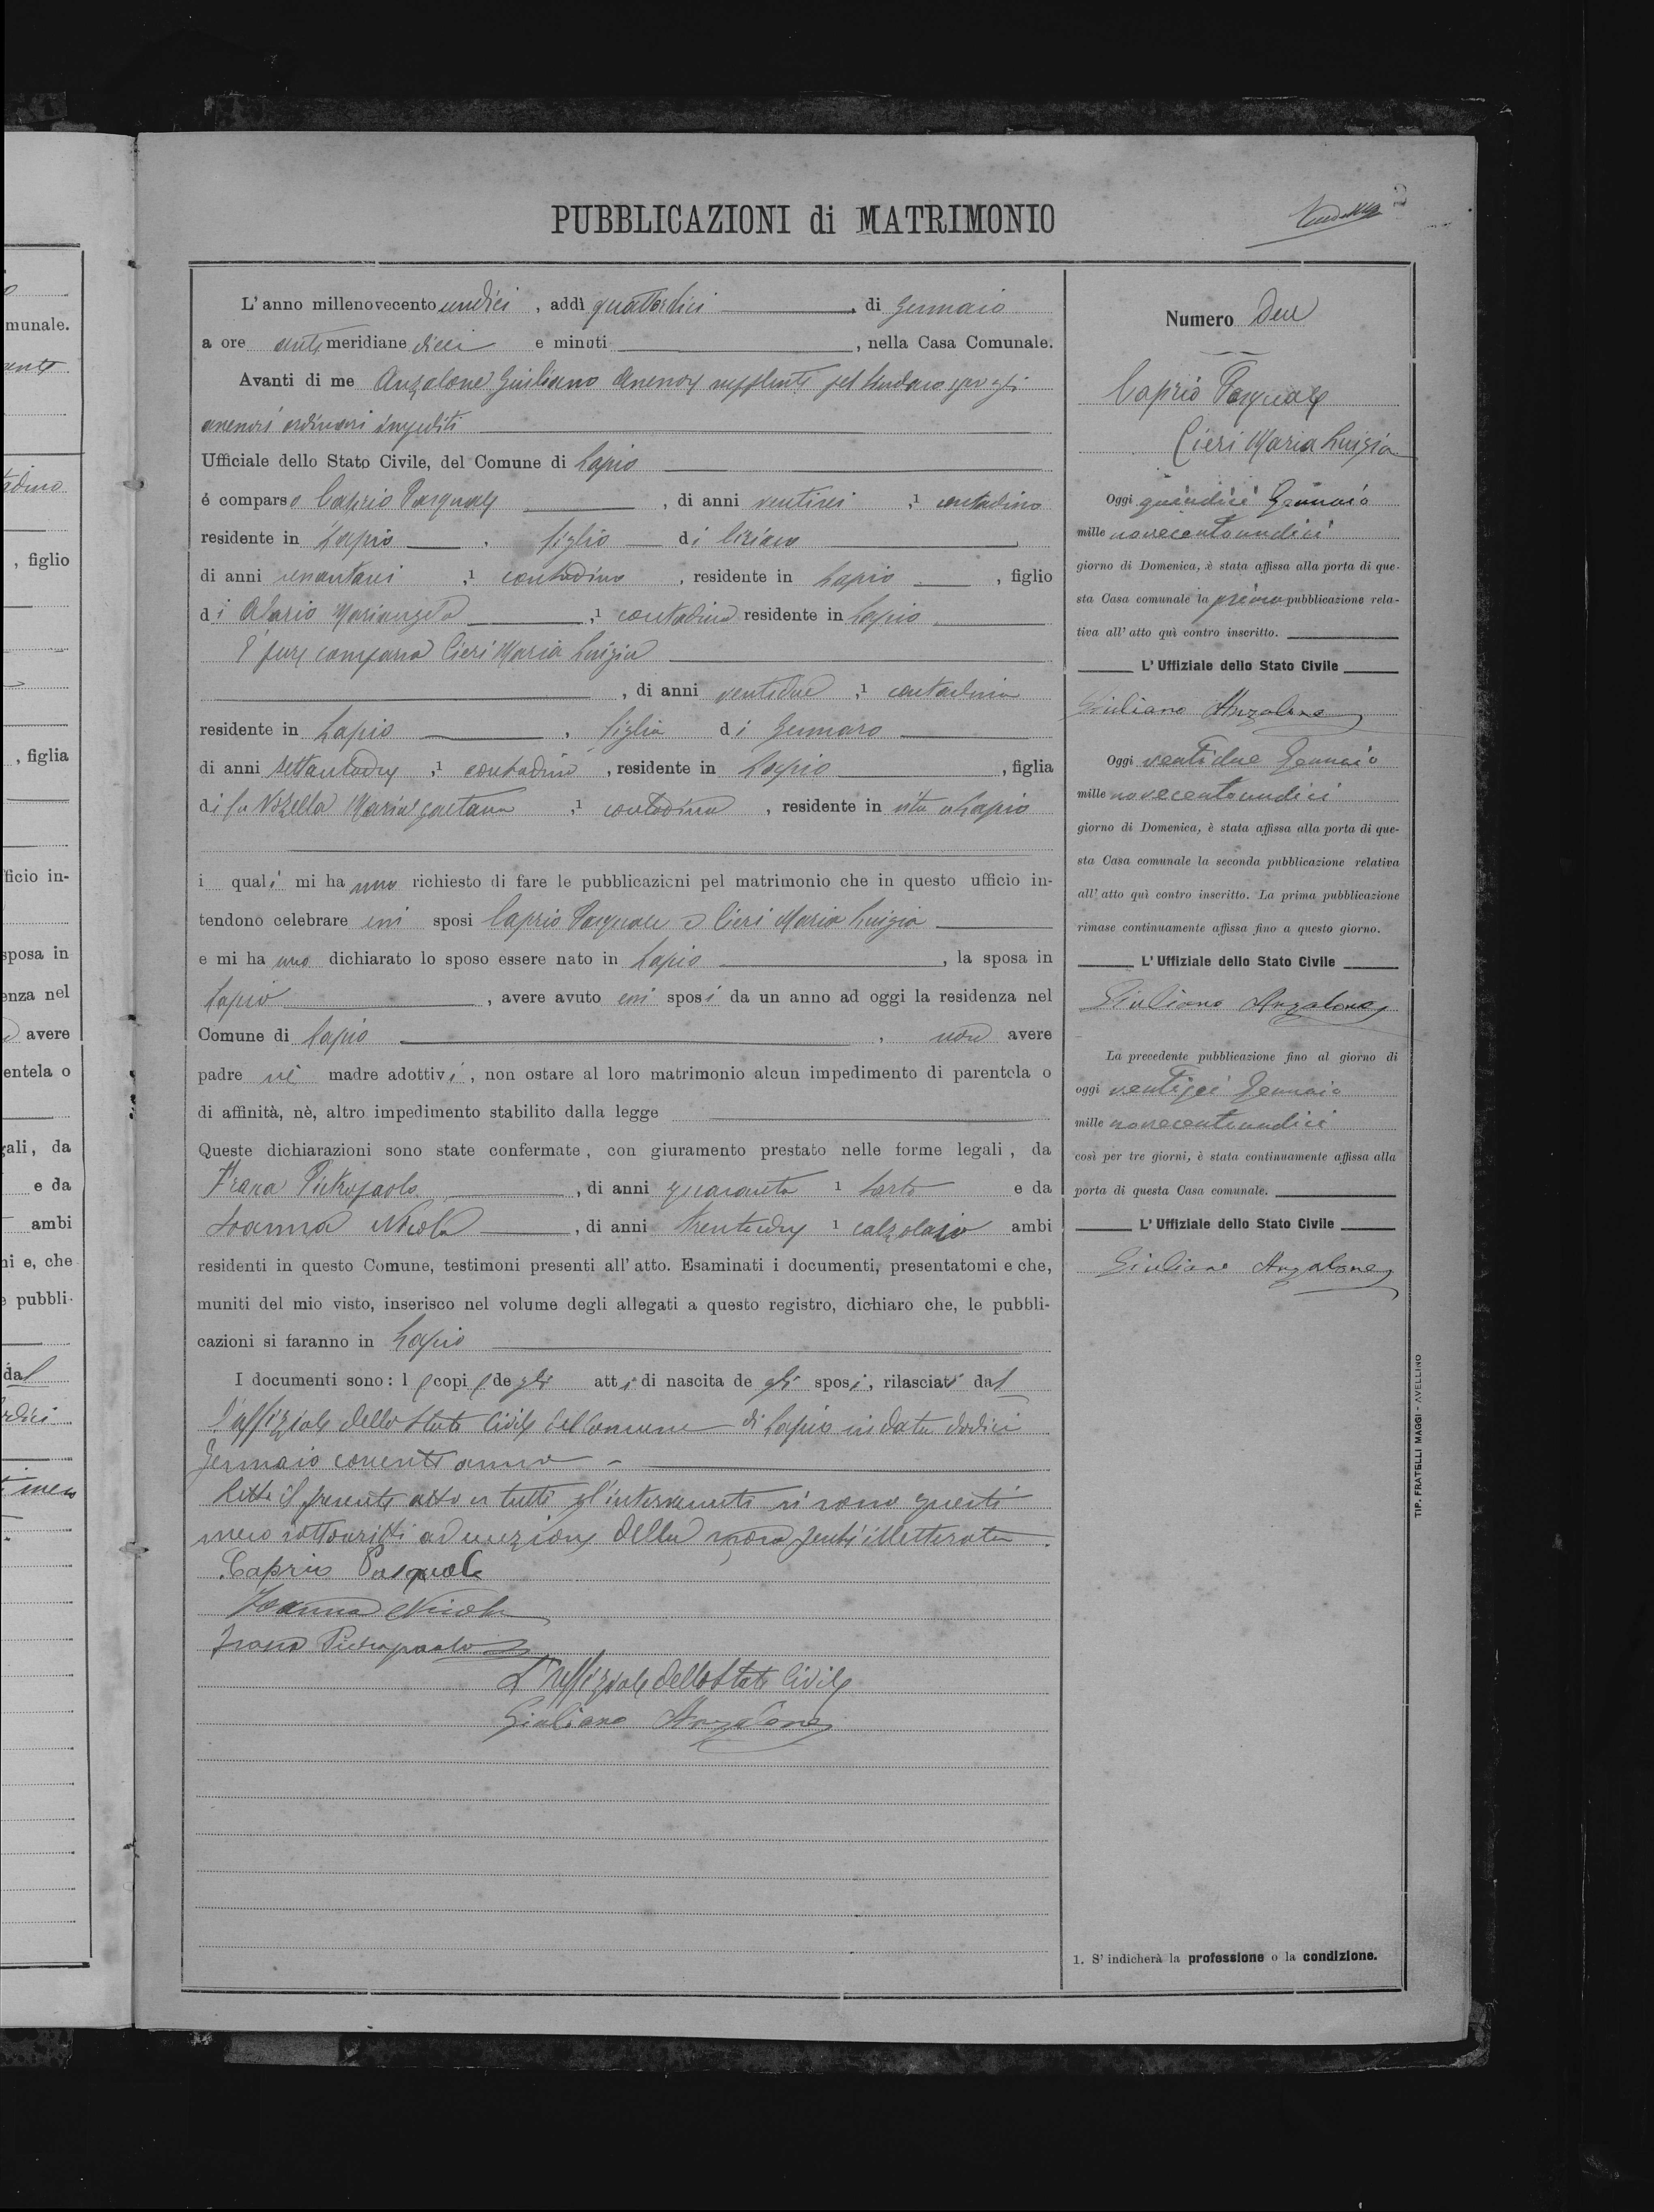 PUBBLICAZIONI di MATRIMONIO
2
L'anno millenovecento undici, addì quattordici di Gennaio
a ore anti meridiane dieci e minuti , nella Casa Comunale.
Avanti di me Anzalone Giuliano Assessore supplente pel Sindaco e per gli
assessori ordinari impediti
Ufficiale dello Stato Civile, del Comune di Lapio
è comparso Caprio Pasquale , di anni ventisei ,1 contadino
residente in Lapio , figlio di Ciriaco
di anni sessantasei ,1 contadino , residente in Lapio , figlio
di Alario Mariangela ,1 contadina residente in Lapio
È pure comparsa Cieri Maria Luigia
, di anni ventidue ,1 contadina
residente in Lapio , figlia di Gennaro
di anni settantadue ,1 contadino , residente in Lapio , figlia
di fu Nozella Maria Gaetana ,1 contadina , residente in vita a Lapio
i quali mi hanno richiesto di fare le pubblicazioni pel matrimonio che in questo ufficio in-
tendono celebrare essi sposi Caprio Pasquale e Cieri Maria Luigia
e mi hanno dichiarato lo sposo essere nato in Lapio , la sposa in
Lapio , avere avuto essi sposi da un anno ad oggi la residenza nel
Comune di Lapio , non avere
padre nè madre adottivi, non ostare al loro matrimonio alcun impedimento di parentela o
di affinità, nè, altro impedimento stabilito dalla legge
Queste dichiarazioni sono state confermate, con giuramento prestato nelle forme legali, da
Frana Pietropaolo , di anni quaranta 1 sarto e da
Joanna Nicola , di anni trentadue 1 calzolaio ambi
residenti in questo Comune, testimoni presenti all'atto. Esaminati i documenti, presentatomi e che,
muniti del mio visto, inserisco nel volume degli allegati a questo registro, dichiaro che, le pubbli-
cazioni si faranno in Lapio
I documenti sono: le copie degli atti di nascita de gli sposi, rilasciati dal
l'uffiziale dello Stato Civile del Comune di Lapio in data dodici
Gennaio corrente anno
Letto il presente atto a tutti gl'intervenuti si sono questi
meco sottoscritti ad eccezione della sposa perchè illetterata
Caprio Pasquale
Joanna Nicola
Frana Pietropaolo
L'uffiziale dello Stato Civile
Giuliano Anzalone
Numero Due
Caprio Pasquale
Cieri Maria Luigia
Oggi quindici Gennaio
mille novecentoundici
giorno di Domenica, è stata affissa alla porta di que-
sta Casa comunale la prima pubblicazione rela-
tiva all'atto quì contro inscritto.
L'Uffiziale dello Stato Civile
Giuliano Anzalone
Oggi ventidue Gennaio
mille novecentoundici
giorno di Domenica, è stata affissa alla porta di que-
sta Casa comunale la seconda pubblicazione relativa
all'atto quì contro inscritto. La prima pubblicazione
rimase continuamente affissa fino a questo giorno.
L'Uffiziale dello Stato Civile
Giuliano Anzalone
La precedente pubblicazione fino al giorno di
oggi ventisei Gennaio
mille novecentoundici
così per tre giorni, è stata continuamente affissa alla
porta di questa Casa comunale.
L'Uffiziale dello Stato Civile
Giuliano Anzalone
1. S'indicherà la professione o la condizione.
TIP. FRATELLI MAGGI - AVELLINO
munale.
, figlio
, figlia
ficio in-
sposa in
enza nel
avere
entela o
gali, da
e da
ambi
ni e, che
e pubbli-
dal